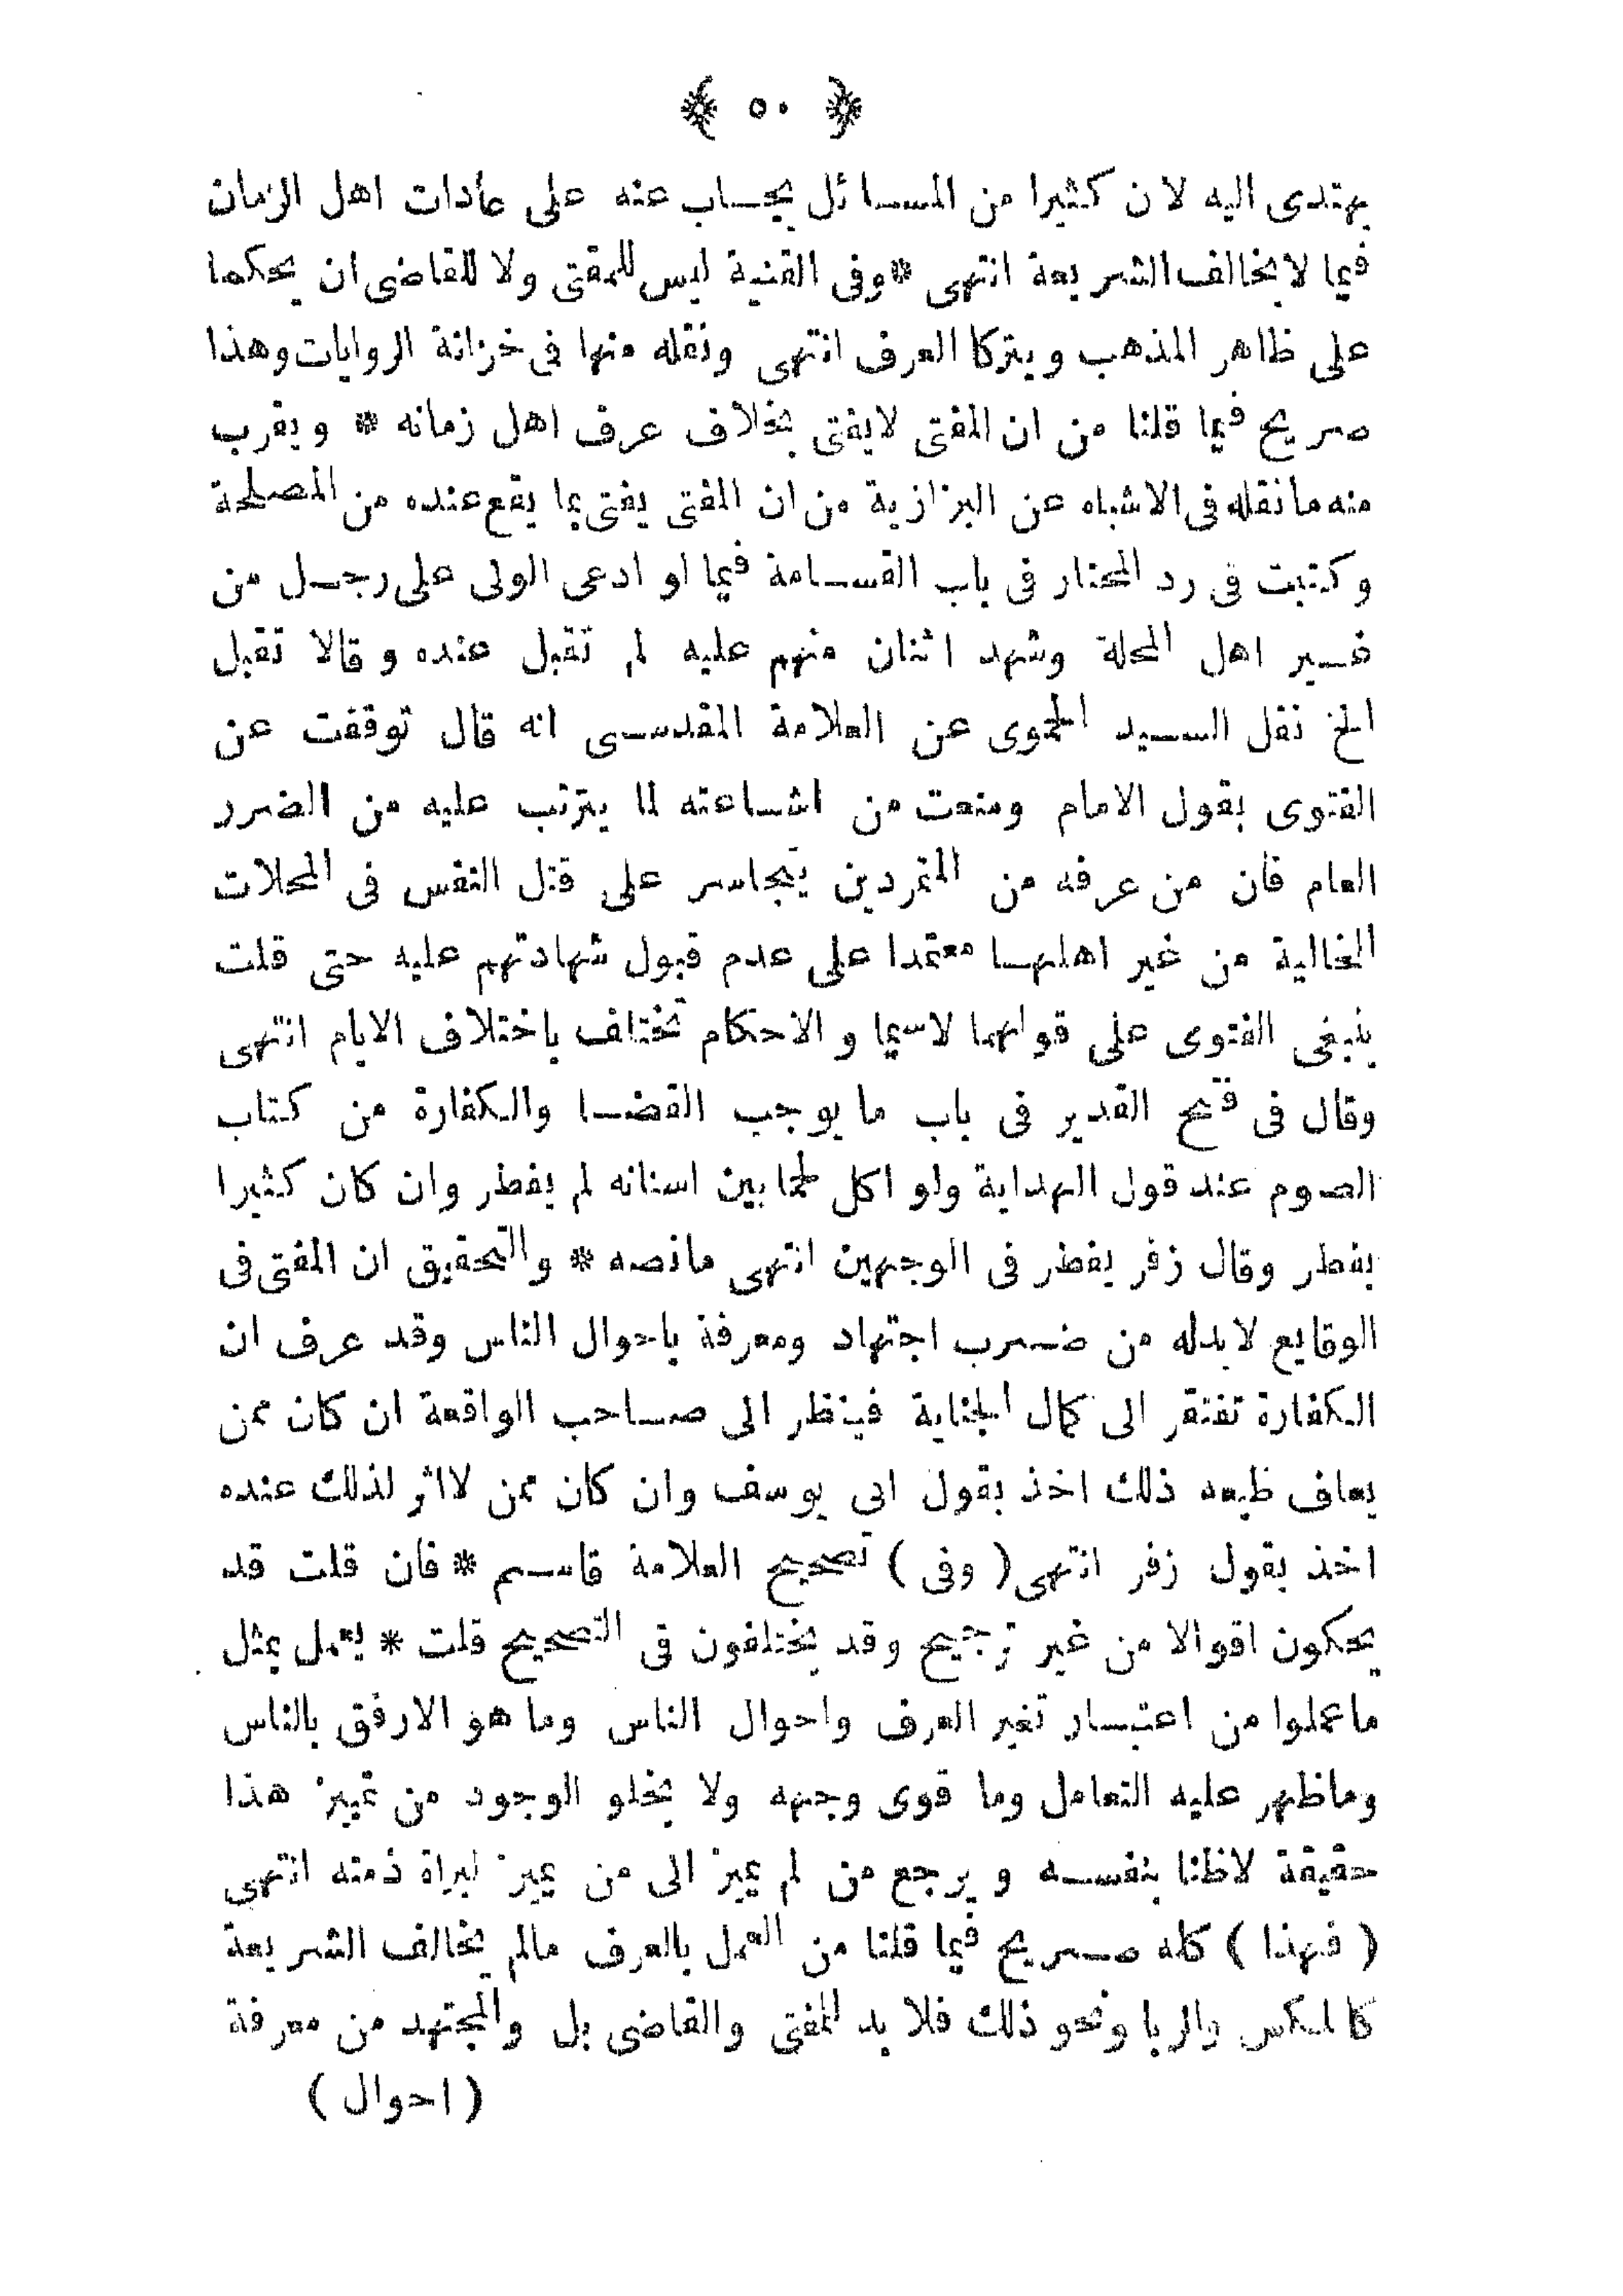 ﴿ ٥٠ ﴾
يهتدى اليه لان كثيرا من المسائل يجاب عنه على عادات اهل الزمان
فيما لا يخالف الشريعة انتهى * وفى القنية ليس للمفتى ولا للقاضى ان يحكما
على ظاهر المذهب ويتركا العرف انتهى ونقله منها فى خزانة الروايات وهذا
صريح فيما قلنا من ان المفتى لايفتى بخلاف عرف اهل زمانه * ويقرب
منه مانقله فى الاشباه عن البزازية من ان المفتى يفتى بما يقع عنده من المصلحة
وكتبت فى رد المحتار فى باب القسامة فيما لو ادعى الولى على رجل من
غير اهل المحلة وشهد اثنان منهم عليه لم تقبل عنده وقالا تقبل
الخ نقل السيد الحموى عن العلامة المقدسى انه قال توقفت عن
الفتوى بقول الامام ومنعت من اشاعته لما يترتب عليه من الضرر
العام فان من عرفه من المتمردين يتجاسر على قتل النفس فى المحلات
الخالية من غير اهلها معتمدا على عدم قبول شهادتهم عليه حتى قلت
ينبغى الفتوى على قولهما لاسيما والاحكام تختلف باختلاف الايام انتهى
وقال فى فتح القدير فى باب ما يوجب القضا والكفارة من كتاب
الصوم عند قول الهداية ولو اكل لحما بين اسنانه لم يفطر وان كان كثيرا
يفطر وقال زفر يفطر فى الوجهين انتهى مانصه * والتحقيق ان المفتى فى
الوقايع لابدله من ضرب اجتهاد ومعرفة باحوال الناس وقد عرف ان
الكفارة تفتقر الى كمال الجناية فينظر الى صاحب الواقعة ان كان ممن
يعاف طبعه ذلك اخذ بقول ابى يوسف وان كان ممن لااثر لذلك عنده
اخذ بقول زفر انتهى ( وفى ) تصحيح العلامة قاسم * فان قلت قد
يحكون اقوالا من غير ترجيح وقد يختلفون فى التصحيح قلت * يعمل بمثل
ماعملوا من اعتبار تغير العرف واحوال الناس وما هو الارفق بالناس
وماظهر عليه التعامل وما قوى وجهه ولا يخلو الوجود من تمييز هذا
حقيقة لاظنا بنفسه ويرجع من لم يميز الى من يميز لبراة ذمته انتهى
( فهذا ) كله صريح فيما قلنا من العمل بالعرف مالم يخالف الشريعة
كالمكس والربا ونحو ذلك فلا بد للمفتى والقاضى بل والمجتهد من معرفة
( احوال )